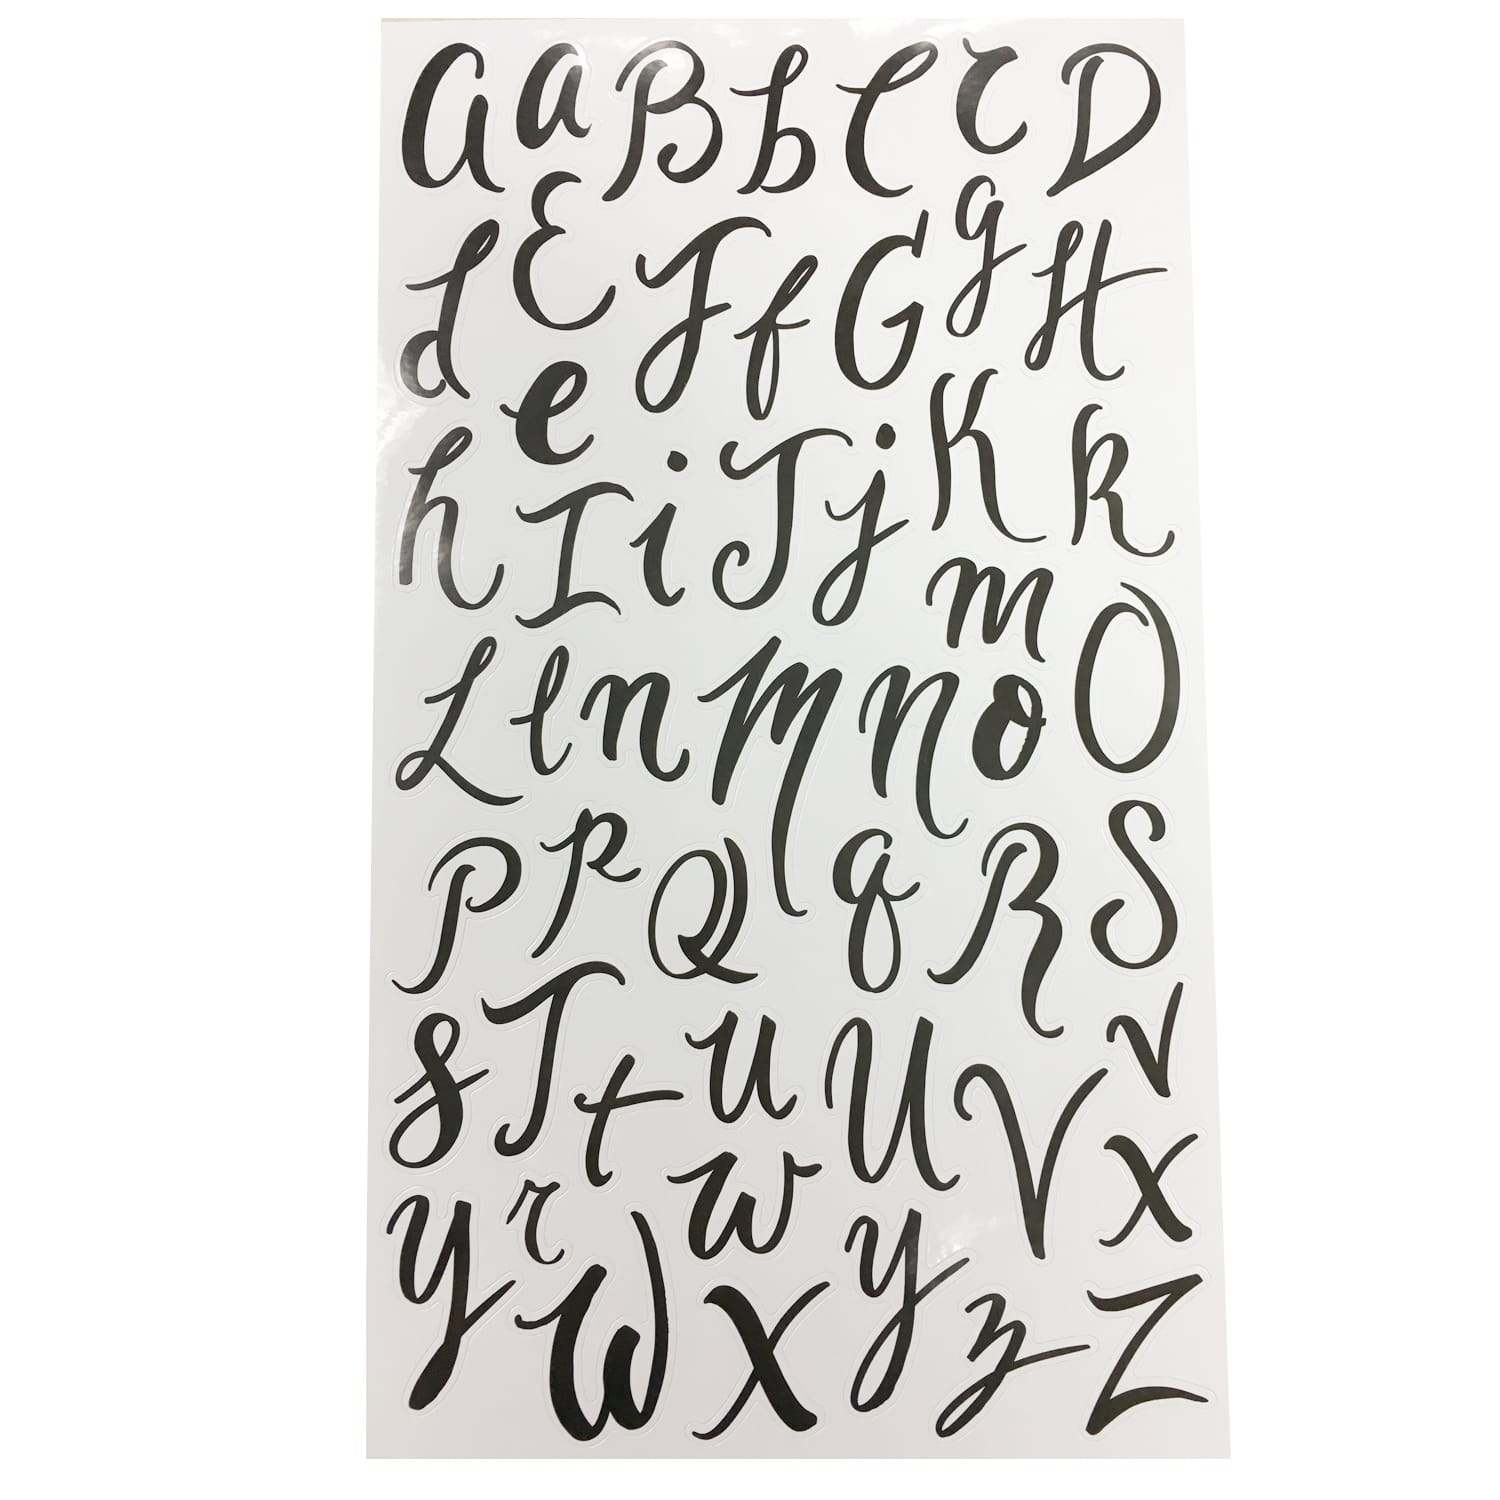 A a B b C c D
d E F f G g H
h e I i J j K k
L l n M N m o O
P p Q q R S
s T t u U V v
y r W w X y z Z x